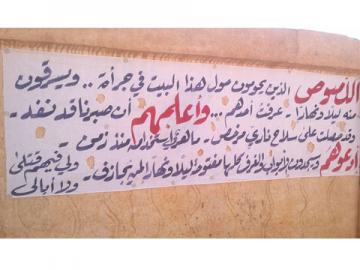 اللصوص الذين يحومون حول هذا البيت في جرأة .. ويسرقون
منه ليلا ونهارا - عرفت أحدهم ... وأعلمهم أن صبرنا قد نفد -
وقد حصلت على سلاح ناري مرخص - ما هو منذ زمن -
إدعوهم وسيجدون الأبواب والغرف كلها مفتوحة ليلا ونهارا لمن يجازف -
ولا أبالي